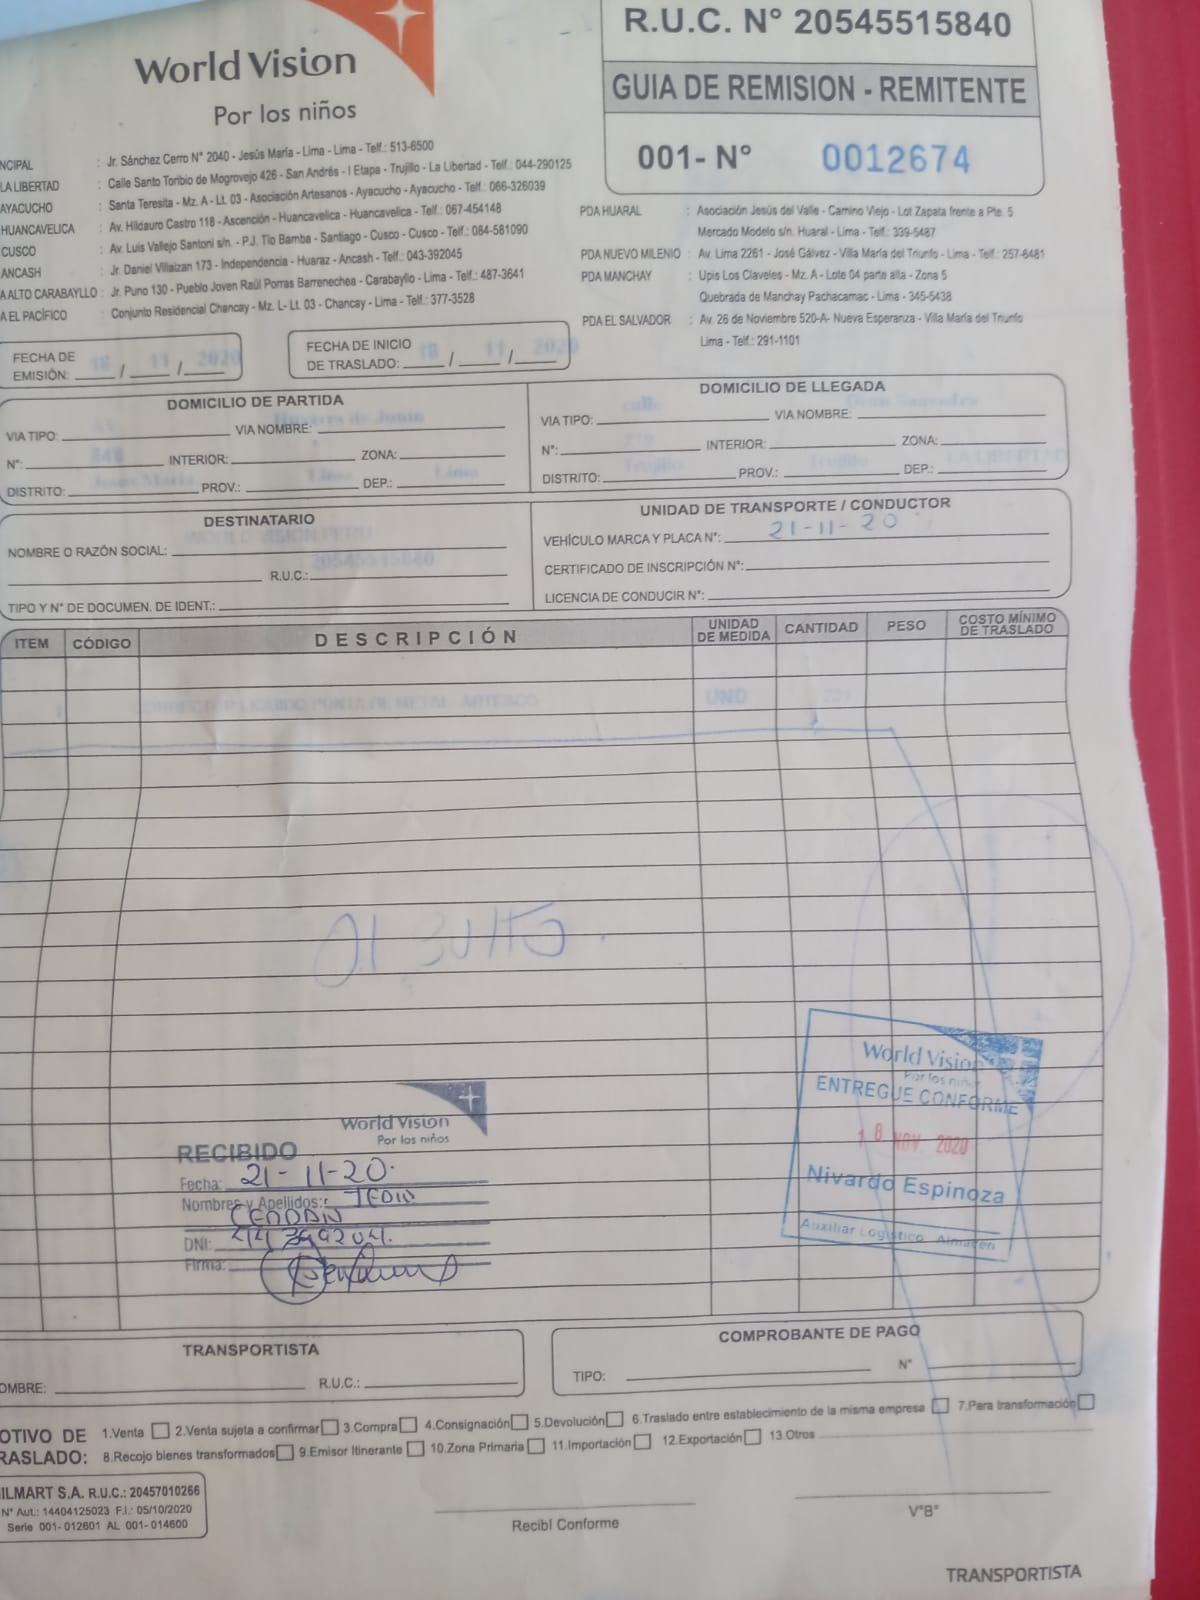 World Vision
Por los niños
R.U.C. N° 20545515840
GUIA DE REMISION - REMITENTE
001- N° 0012674
NCIPAL : Jr. Sánchez Cerro N° 2040 - Jesús María - Lima - Lima - Telf.: 513-6500
LA LIBERTAD : Calle Santo Toribio de Mogrovejo 426 - San Andrés - I Etapa - Trujillo - La Libertad - Telf.: 044-290125
AYACUCHO : Santa Teresita - Mz. A - Lt. 03 - Asociación Artesanos - Ayacucho - Ayacucho - Telf.: 066-326039
HUANCAVELICA : Av. Hildauro Castro 118 - Ascención - Huancavelica - Huancavelica - Telf.: 067-454148
CUSCO : Av. Luis Vallejo Santoni s/n. - P.J. Tío Bamba - Santiago - Cusco - Cusco - Telf.: 084-581090
ANCASH : Jr. Daniel Villaizan 173 - Independencia - Huaraz - Ancash - Telf.: 043-392045
A ALTO CARABAYLLO : Jr. Puno 130 - Pueblo Joven Raúl Porras Barrenechea - Carabayllo - Lima - Telf.: 487-3641
A EL PACÍFICO : Conjunto Residencial Chancay - Mz. L- Lt. 03 - Chancay - Lima - Telf.: 377-3528
PDA HUARAL : Asociación Jesús del Valle - Camino Viejo - Lot Zapata frente a Pte. 5
Mercado Modelo s/n. Huaral - Lima - Telf.: 339-5487
PDA NUEVO MILENIO : Av. Lima 2261 - José Gálvez - Villa María del Triunfo - Lima - Telf.: 257-6481
PDA MANCHAY : Upis Los Claveles - Mz. A - Lote 04 parte alta - Zona 5
Quebrada de Manchay Pachacamac - Lima - 345-5438
PDA EL SALVADOR : Av. 26 de Noviembre 520-A- Nueva Esperanza - Villa María del Triunfo
Lima - Telf.: 291-1101
FECHA DE EMISIÓN: 18 / 11 / 2020
FECHA DE INICIO DE TRASLADO: 18 / 11 / 2020
DOMICILIO DE PARTIDA
VIA TIPO: AV VIA NOMBRE: Horacio de Junin
N°: 848 INTERIOR: ZONA:
DISTRITO: Jesus Maria PROV.: Lima DEP.: Lima
DOMICILIO DE LLEGADA
VIA TIPO: calle VIA NOMBRE: Dean Saavedra
N°: INTERIOR: ZONA:
DISTRITO: Trujillo PROV.: Trujillo DEP.: LA LIBERTAD
DESTINATARIO
NOMBRE O RAZÓN SOCIAL: WORLD VISION PERU
R.U.C.: 20545515840
TIPO Y N° DE DOCUMEN. DE IDENT.:
UNIDAD DE TRANSPORTE / CONDUCTOR
VEHÍCULO MARCA Y PLACA N°: 21-11-20
CERTIFICADO DE INSCRIPCIÓN N°:
LICENCIA DE CONDUCIR N°:
ITEM CÓDIGO DESCRIPCIÓN UNIDAD DE MEDIDA CANTIDAD PESO COSTO MÍNIMO DE TRASLADO
1 CORRECTOR LIQUIDO PUNTA DE METAL ARTESCO UND
01 BULTO.
World Vision
Por los niños
ENTREGUE CONFORME
18 NOV 2020
Nivardo Espinoza
Auxiliar Logístico Almacen
World Vision
Por los niños
RECIBIDO
Fecha: 21-11-20.
Nombres y Apellidos:
DNI:
Firma:
TRANSPORTISTA
OMBRE: R.U.C.:
COMPROBANTE DE PAGO
TIPO: N°
OTIVO DE RASLADO:
1.Venta 2.Venta sujeta a confirmar 3.Compra 4.Consignación 5.Devolución 6.Traslado entre establecimiento de la misma empresa 7.Para transformación
8.Recojo bienes transformados 9.Emisor Itinerante 10.Zona Primaria 11.Importación 12.Exportación 13.Otros
ILMART S.A. R.U.C.: 20457010266
N° Aut.: 14404125023 F.I.: 05/10/2020
Serie 001- 012601 AL 001- 014600
Recibí Conforme
V°B°
TRANSPORTISTA